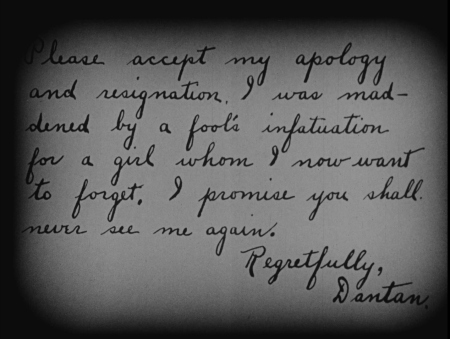 Please accept my apology
and resignation. I was mad-
dened by a fool's infatuation
for a girl whom I now want
to forget. I promise you shall
never see me again.
Regretfully,
Dantan.